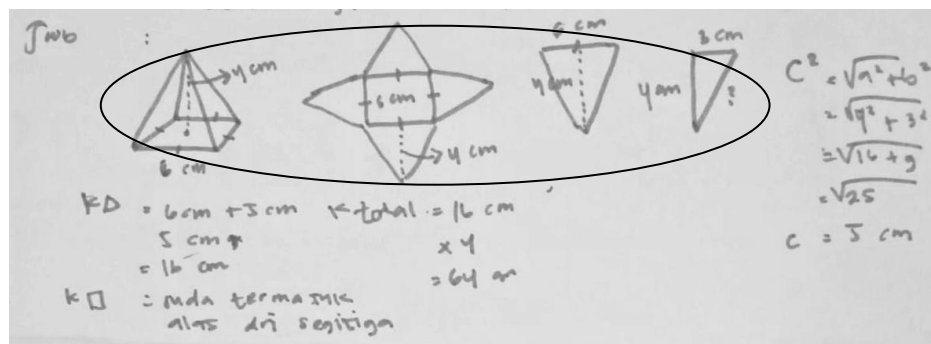 Jwb :
4 cm
6 cm
6 cm
4 cm
6 cm
4 cm
3 cm
4 cm
?
C² = √a²+b²
= √4² + 3²
= √16 + 9
= √25
c = 5 cm
K△ = 6cm + 5cm
5 cm +
= 16 cm
K total = 16 cm
x 4
= 64 cm
K□ = uda termasuk
alas dri segitiga